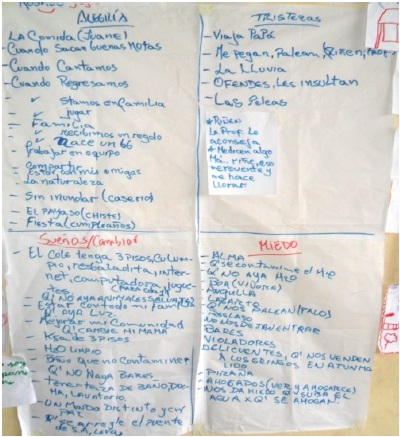 ALEGRÍA
La Comida (Juane)
Cuando Sacan buenas Notas
Cuando Cantamos
Cuando Regresamos
✓ Stamos en familia
✓ Jugar
Familia
✓ Recibimos un regalo
✓ Nace un bb
trabajar en equipo
Compartir
Estar con mis amigos
La naturaleza
- Sin inundar (caserio)
- El payaso (chiste)
- Fiesta (cumpleaños)
TRISTEZAS
- Viaja Papá
- Me Pegan, Palean, Riñen,
- La Lluvia
- OFENDES, Les insultan
- Las Peleas
* Riñen
La Prof. Le
aconseja
* Me dicen algo
Ma.. riñe, eso
me hace
llorar
Sueños/Cambios
- El Cole tenga 3 PISOS, Columpio, resbaladita, internet, computadora, juguetes
- Q' NO haya ANIMALES SALVAJES
- Estar contodo mi familia
- Q' haya Luz
- Mejorar mi Comunidad
- Q' CAMBIE MI MAMA
- Ksa de 3 PISOS
- H2O LIMPIO
- Barco Que no Contamine
- Q' No Haya BARES
- tener taza de BAÑO, DUCHA, LAVATORIO
- UN Mundo Distinto y en PAZ
- Se arregle el puente
MIEDO
- ALMA
- Q' se contamine el H2O
- Q' NO AYA H2O
- BOA (VIVORA)
- LAGARTO
- Q' NOS PALEAN (PALO)
- NO NOS DEJAN ENTRAR
- BARES
- VIOLADORES
- DELICUENTES, Q' NOS VENDEN
A LOS GRINGOS EN ATUN MOLIDO
- PIRAÑA
- AHOGADOS (VER y AHOGARCE)
- NOS DA MIEDO Q' SUBA EL
AGUA X Q' SE AHOGAN.